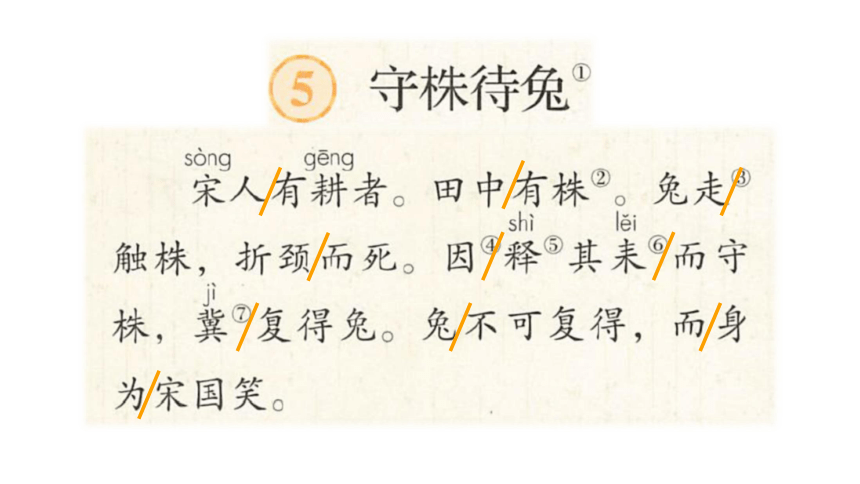 5 守株待兔①
sòng gēng
宋人/有耕者。田中/有株②。兔走/③
shì lěi
触株，折颈/而死。因④/释⑤其耒⑥/而守
jì
株，冀⑦/复得兔。兔/不可复得，而/身
为/宋国笑。